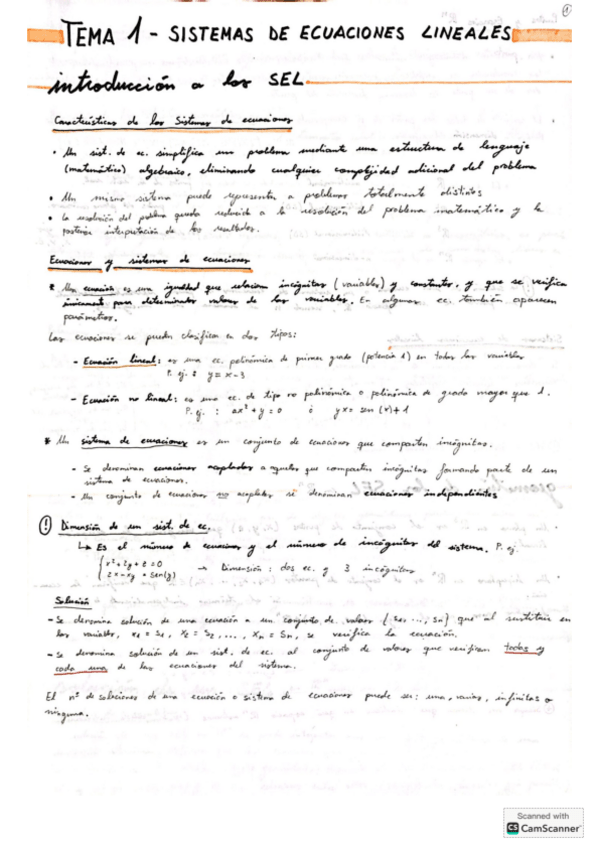 1
TEMA 1 - SISTEMAS DE ECUACIONES LINEALES
introducción a los SEL
Características de los Sistemas de ecuaciones
• Un sist. de ec. simplifica un problema mediante una estructura de lenguaje
(matemático) algebraico, eliminando cualquier complejidad adicional del problema
• Un mismo sistema puede representar a problemas totalmente distintos
• La resolución del problema queda reducida a la resolución del problema matemático y la
posterior interpretación de los resultados.
Ecuaciones y sistemas de ecuaciones
* Una ecuación es una igualdad que relaciona incógnitas (variables) y constantes, y que se verifica
únicament para determinados valores de las variables. En algunas ec. también aparecen
parámetros.
Las ecuaciones se pueden clasificar en dos tipos:
- Ecuación lineal: es una ec. polinómica de primer grado (potencia 1) en todas las variables
P. ej. : y = x - 3
- Ecuación no lineal: es una ec. de tipo no polinómica o polinómica de grado mayor que 1.
P. ej. : ax² + y = 0 ó yx = sen (x) + 1
* Un sistema de ecuaciones es un conjunto de ecuaciones que comparten incógnitas.
- Se denominan ecuaciones acopladas a aquellas que comparten incógnitas formando parte de un
sistema de ecuaciones.
- Un conjunto de ecuaciones no acopladas se denominan ecuaciones independientes
! Dimensión de un sist. de ec.
↳ Es el número de ecuaciones y el número de incógnitas del sistema. P. ej.
x² + 2y + z = 0
z = -xy + sen(y) → Dimensión: dos ec. y 3 incógnitas
Solución
- Se denomina solución de una ecuación a un conjunto de valores (s₁, ..., sn) que al sustituir en
las variables, x₁ = s₁, x₂ = s₂, ..., xn = sn, se verifica la ecuación.
- Se denomina solución de un sist. de ec. al conjunto de valores que verifican todas y
cada una de las ecuaciones del sistema.
El nº de soluciones de una ecuación o sistema de ecuaciones puede ser: una, varias, infinitas o
ninguna.
Scanned with
CS CamScanner